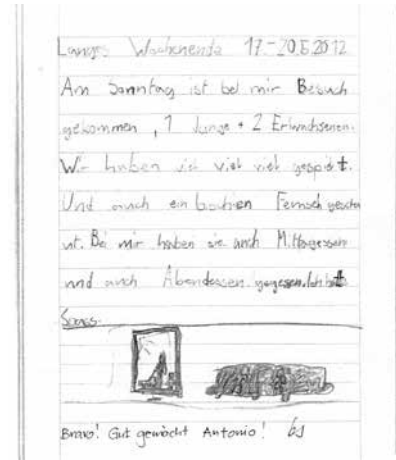 Langes Wochenende 17.-20.5.2012
Am Sonntag ist bei mir Besuch
gekommen, 1 Junge + 2 Erwachsenen.
Wir haben viel viel viel gespielt.
Und auch ein bachien Fernseh geschau
ut. Bei mir haben sie auch Mittagessen
und auch Abendessen gegessen. Ich
Bravo! Gut gemacht Antonio!